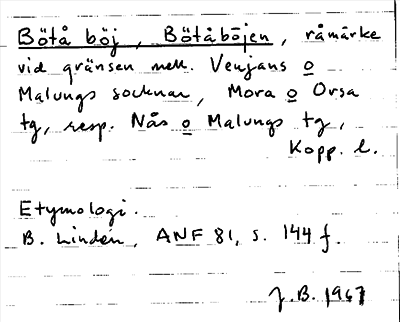 Bötå böj, Bötåböjen, råmärke
vid gränsen mell. Venjans o
Malungs socknar, Mora o Orsa
tg, resp. Nås o Malungs tg,
Kopp. l.
Etymologi.
B. Lindén, ANF 81, s. 144 f.
J.B. 1967